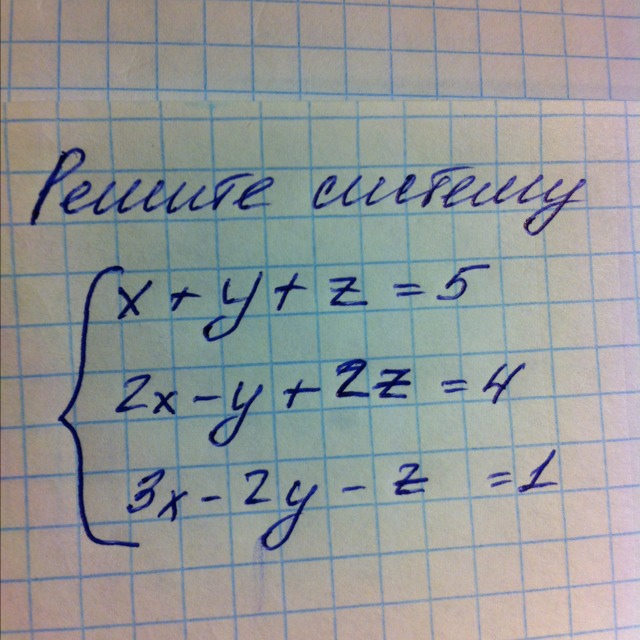 Решите систему
x + y + z = 5
2x - y + 2z = 4
3x - 2y - z = 1